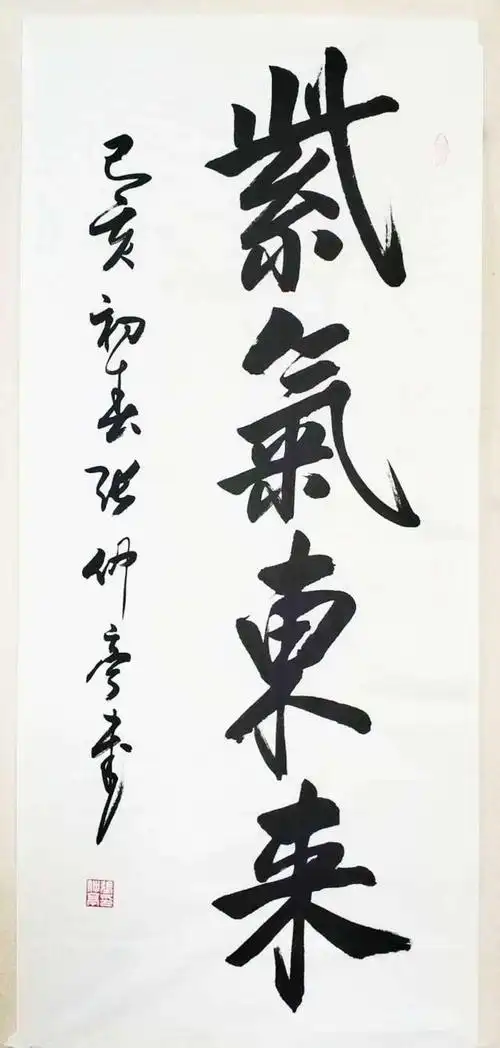 紫氣東来
己亥初春張仲亭書